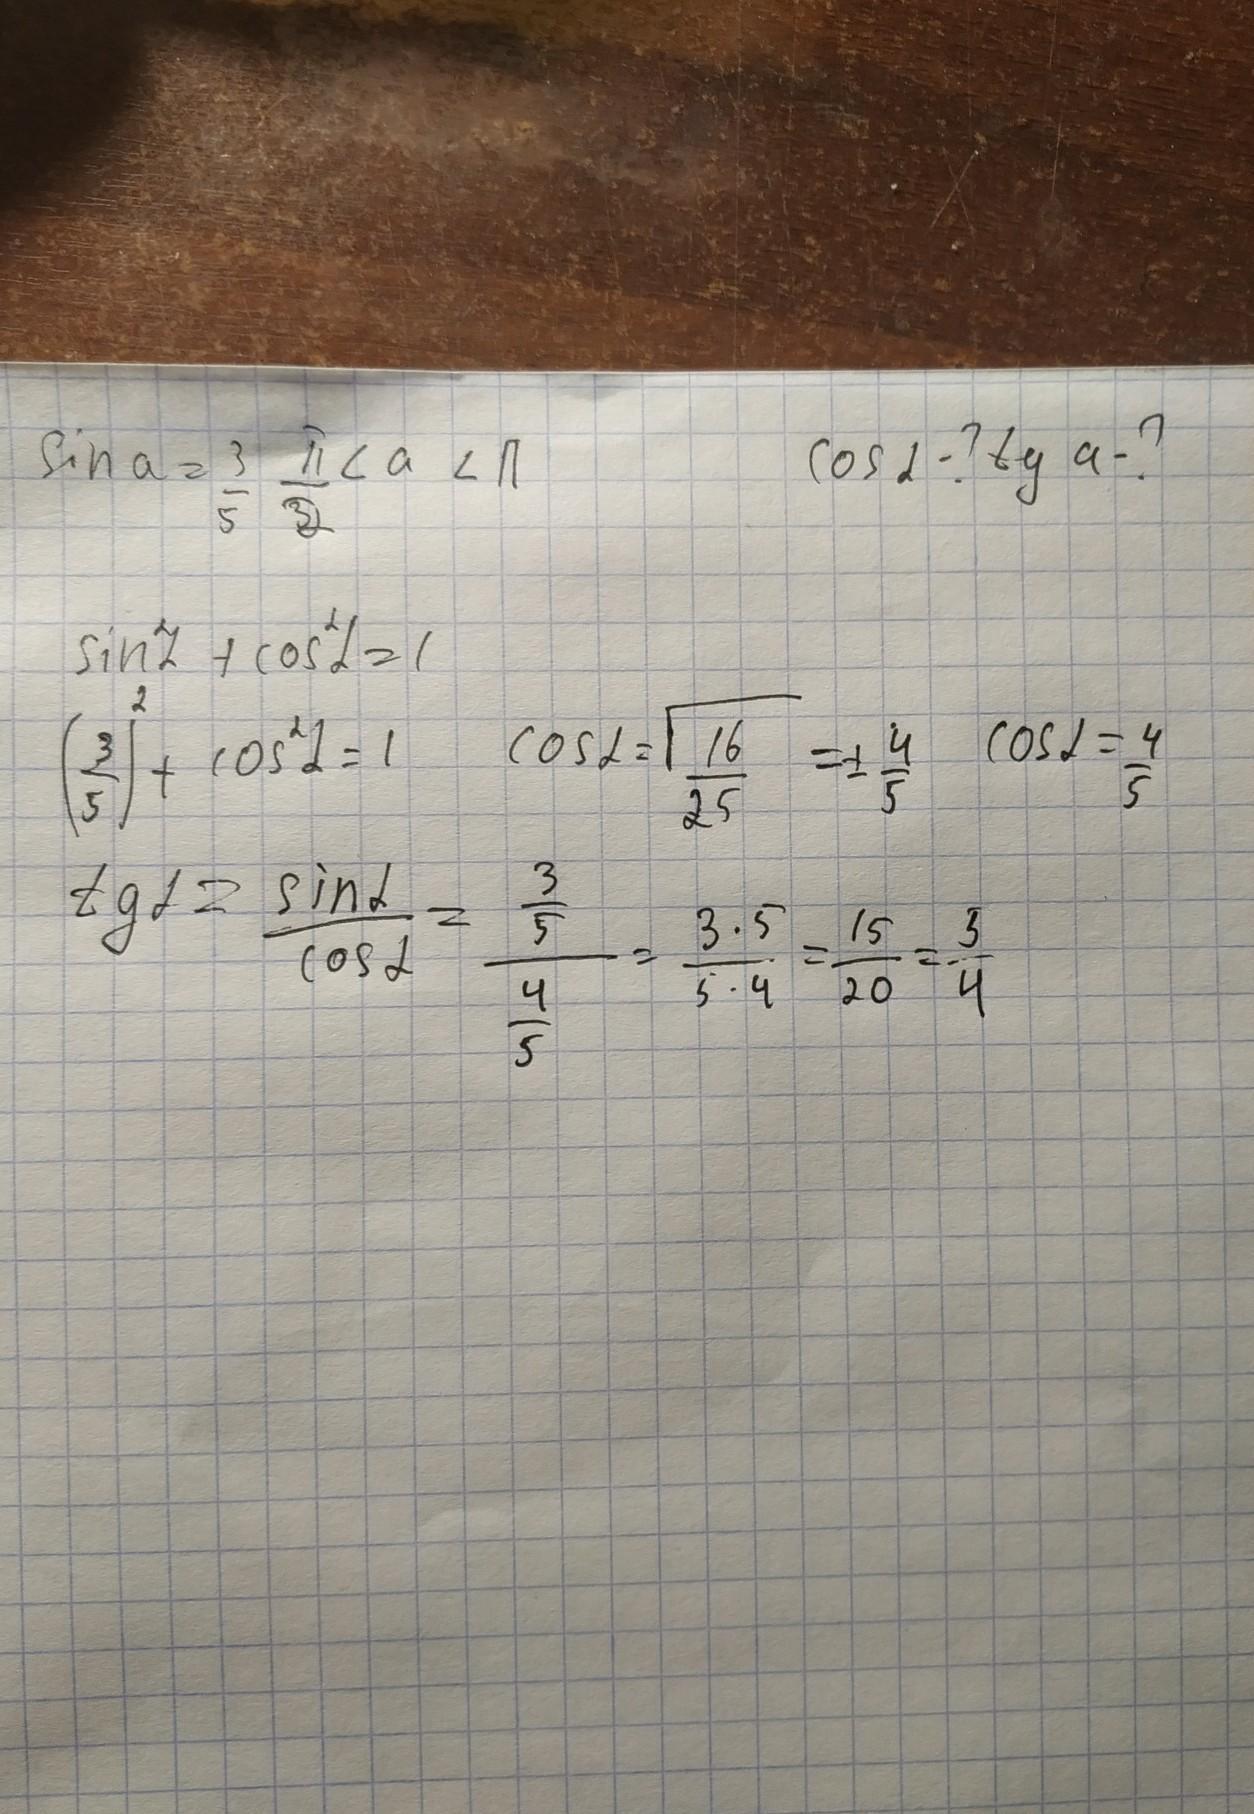 sin a = 3/5 π/2 < a < π cos α - ? tg a - ?
sin²α + cos²α = 1
(3/5)² + cos²α = 1 cos α = √16/25 = ± 4/5 cos α = 4/5
tg α = sin α/cos α = 3/5/4/5 = 3·5/5·4 = 15/20 = 3/4